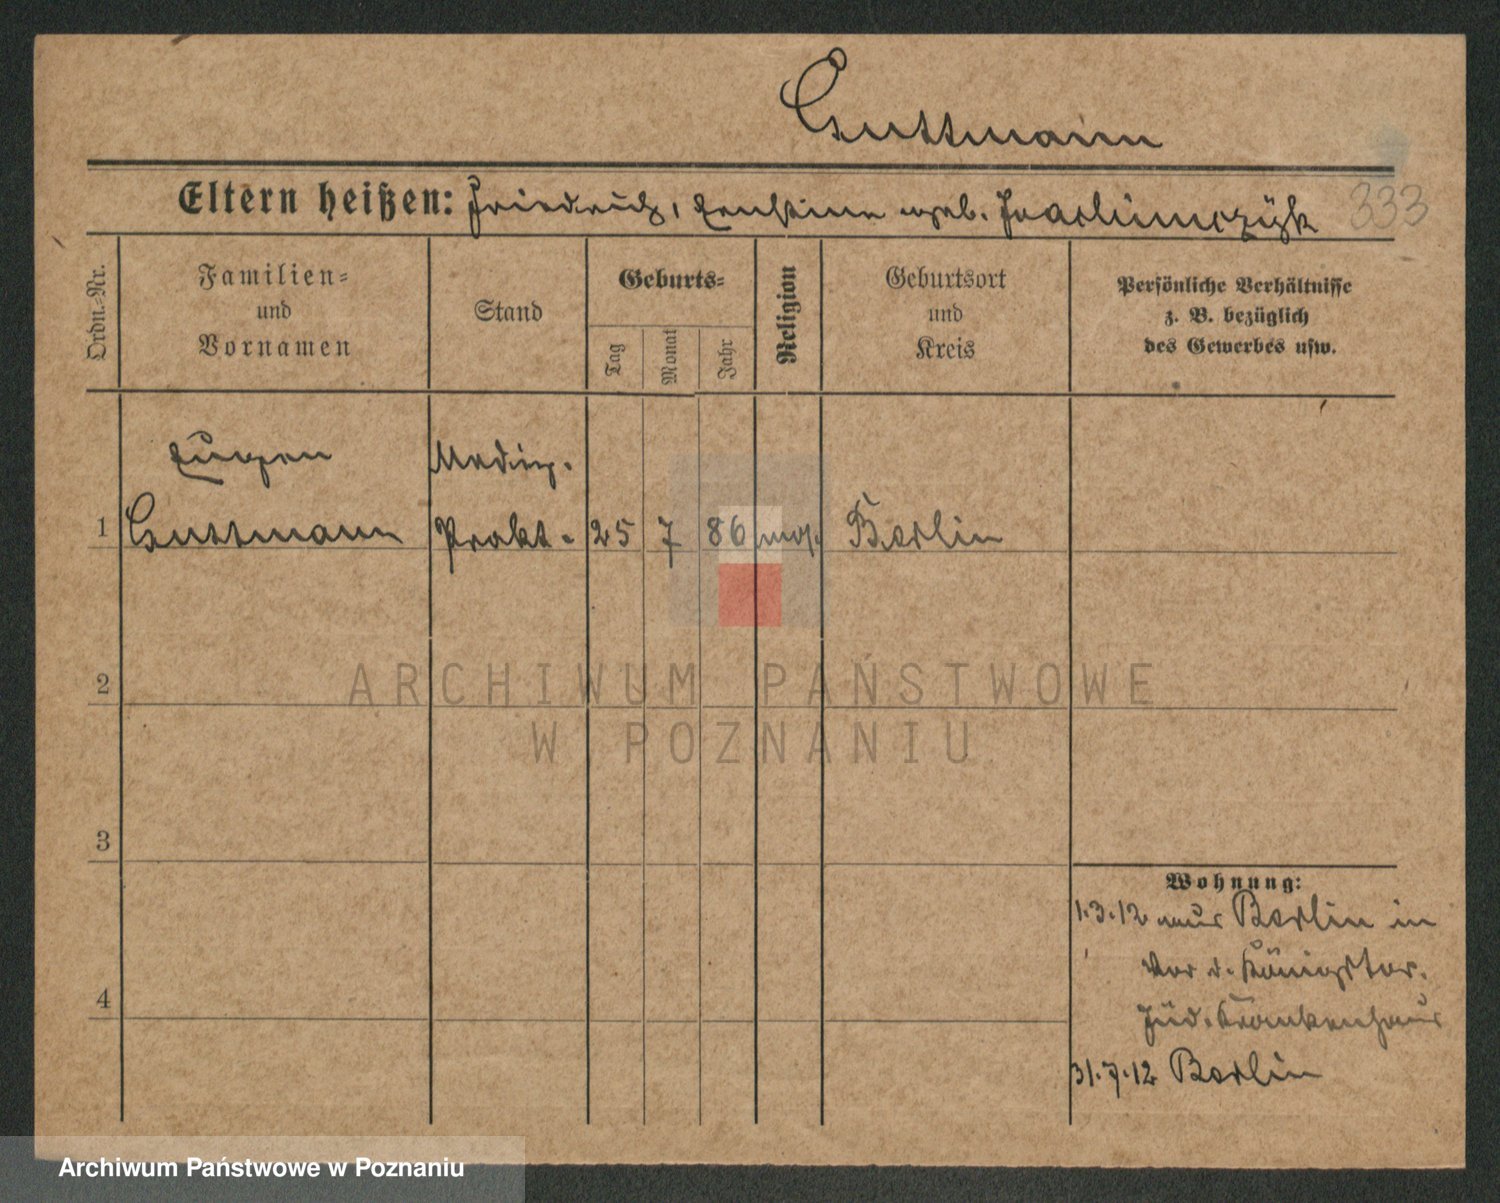 Guttmann
Eltern heißen: Friedrich, Ernstine geb. Joachimczyk
333
Ordn.-Nr.
Familien-
und
Vornamen
Stand
Geburts-
Tag
Monat
Jahr
Religion
Geburtsort
und
Kreis
Persönliche Verhältnisse
z. B. bezüglich
des Gewerbes usw.
Eugen Mediz.
1 Guttmann Prakt. 25 7 86 mos. Berlin
2
ARCHIWUM PAŃSTWOWE
W POZNANIU
3
Wohnung:
1.3.12 aus Berlin in
Vor d. Königstor.
4
Jüd. Krankenhaus
31.7.12 Berlin
Archiwum Państwowe w Poznaniu